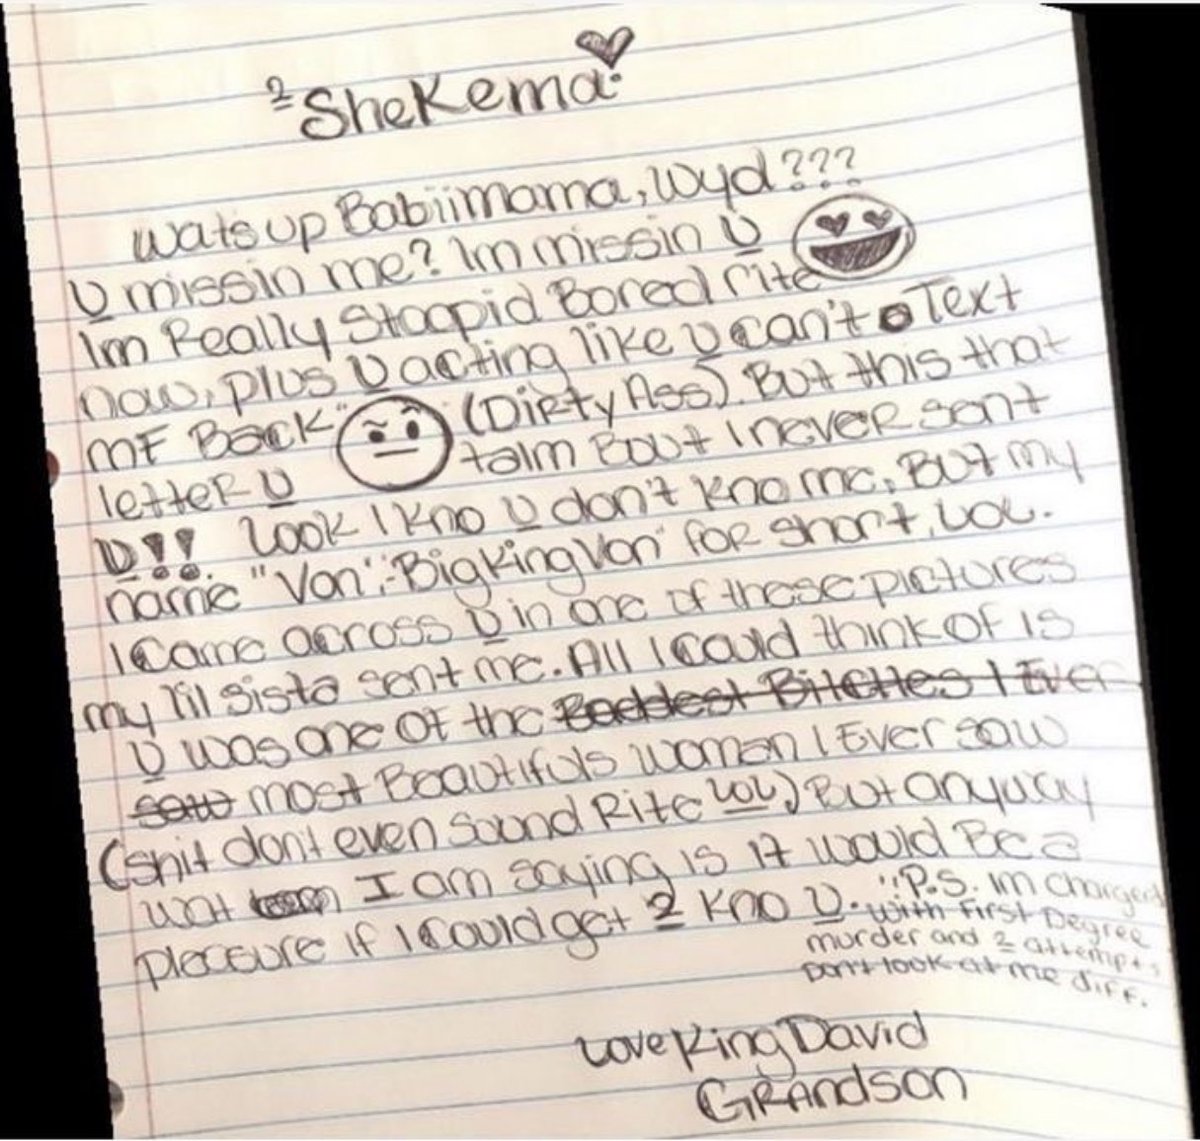 2 Shekema:
wats up Babiimama, wyd???
U missin me? Im missin U
Im Really Stoopid Bored rite
now, plus U acting like U can't Text
MF Back (Dirty Ass). But this that
letter U talm Bout I never sent
U!! Look I kno U don't kno me, But my
name "Von", "Big King Von" for short, LOL.
I came across U in one of these pictures
my lil sista sent me. All I could think of is
U was one of the Baddest Bitches I Ever
saw most Beautifuls woman I Ever saw
(shit dont even sound Rite LOL) But anyway
wat I am saying is it would Be a
pleasure if I could get 2 kno U.
"P.S. Im charged
with First Degree
murder and 2 attempts
Don't look at me diff.
Love King David
Grandson